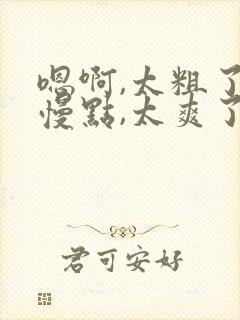 嗯啊,太粗了
慢點,太爽了
君可安好